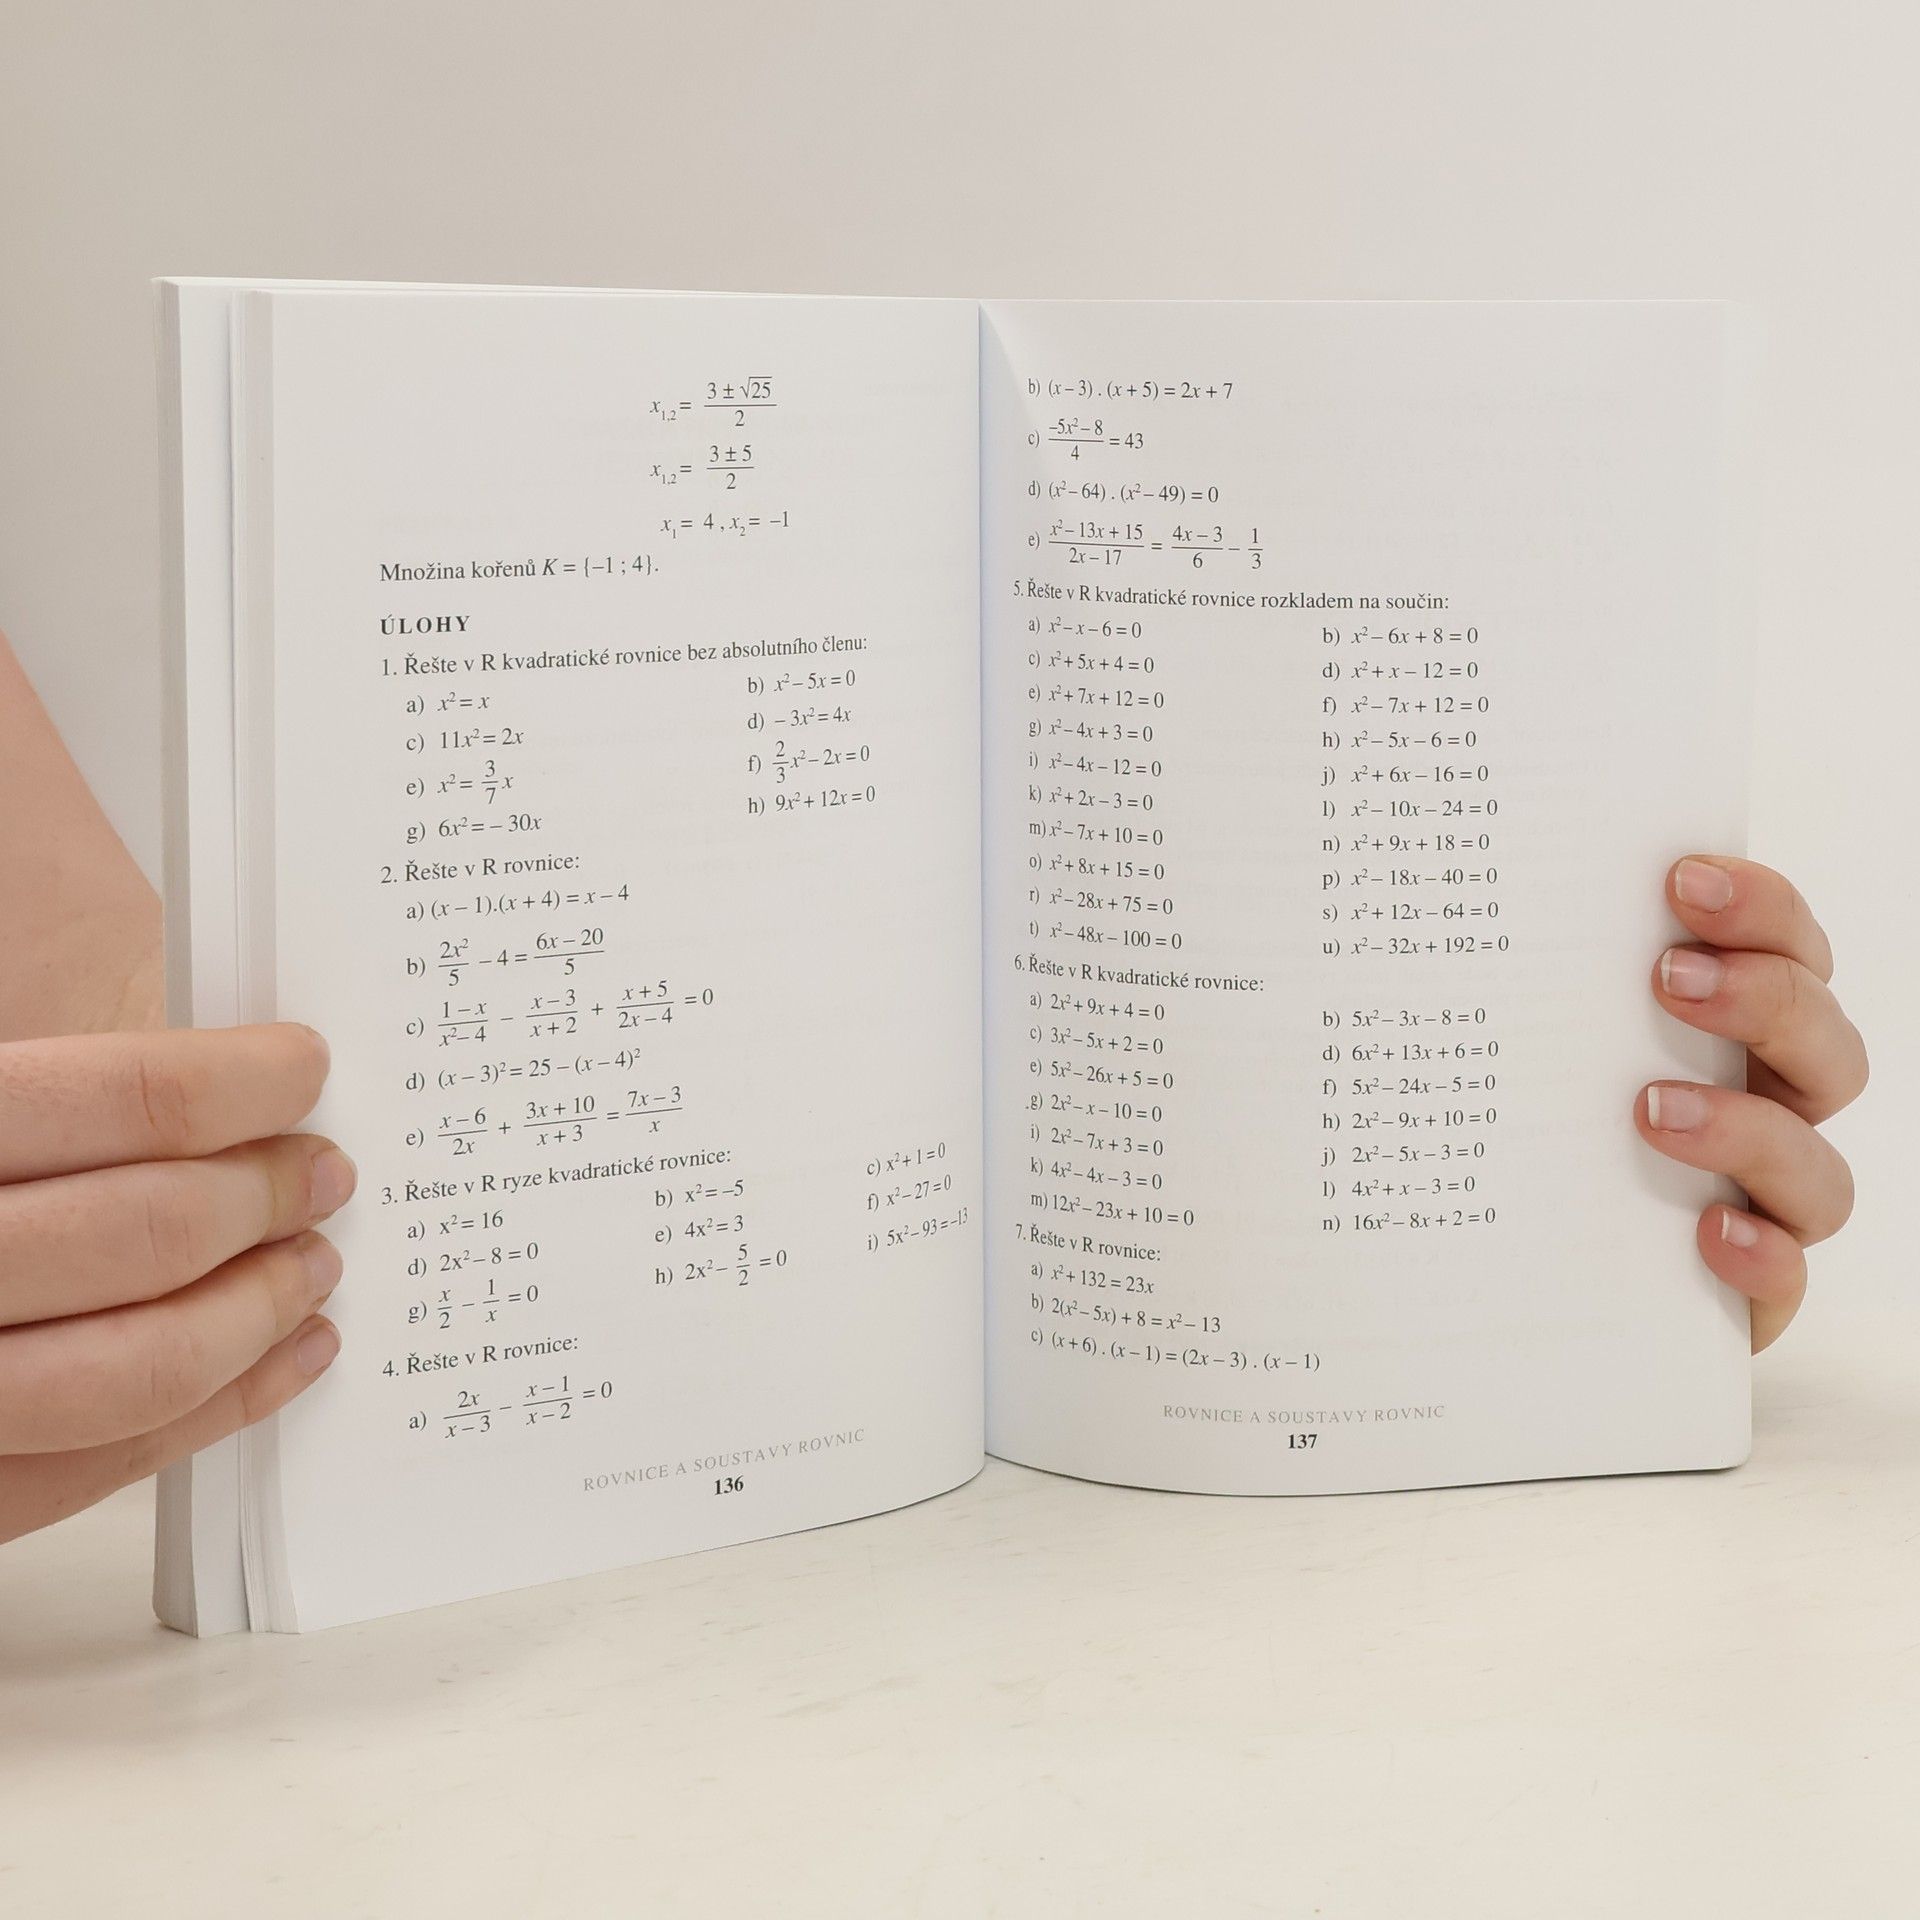 x₁,₂ = (3 ± √25)/2
x₁,₂ = (3 ± 5)/2
x₁ = 4 , x₂ = –1
Množina kořenů K = {–1 ; 4}.
ÚLOHY
1. Řešte v R kvadratické rovnice bez absolutního členu:
a) x² = x b) x² – 5x = 0
c) 11x² = 2x d) – 3x² = 4x
e) x² = 3/7 x f) 2/3 x² – 2x = 0
g) 6x² = – 30x h) 9x² + 12x = 0
2. Řešte v R rovnice:
a) (x – 1).(x + 4) = x – 4
b) 2x²/5 – 4 = (6x – 20)/5
c) (1 – x)/(x² – 4) – (x – 3)/(x + 2) + (x + 5)/(2x – 4) = 0
d) (x – 3)² = 25 – (x – 4)²
e) (x – 6)/2x + (3x + 10)/(x + 3) = (7x – 3)/x
3. Řešte v R ryze kvadratické rovnice:
a) x² = 16 b) x² = –5 c) x² + 1 = 0
d) 2x² – 8 = 0 e) 4x² = 3 f) x² – 27 = 0
g) x/2 – 1/x = 0 h) 2x² – 5/2 = 0 i) 5x² – 93 = –13
4. Řešte v R rovnice:
a) 2x/(x – 3) – (x – 1)/(x – 2) = 0
ROVNICE A SOUSTAVY ROVNIC
136
b) (x – 3) . (x + 5) = 2x + 7
c) (–5x² – 8)/4 = 43
d) (x² – 64) . (x² – 49) = 0
e) (x² – 13x + 15)/(2x – 17) = (4x – 3)/6 – 1/3
5. Řešte v R kvadratické rovnice rozkladem na součin:
a) x² – x – 6 = 0 b) x² – 6x + 8 = 0
c) x² + 5x + 4 = 0 d) x² + x – 12 = 0
e) x² + 7x + 12 = 0 f) x² – 7x + 12 = 0
g) x² – 4x + 3 = 0 h) x² – 5x – 6 = 0
i) x² – 4x – 12 = 0 j) x² + 6x – 16 = 0
k) x² + 2x – 3 = 0 l) x² – 10x – 24 = 0
m) x² – 7x + 10 = 0 n) x² + 9x + 18 = 0
o) x² + 8x + 15 = 0 p) x² – 18x – 40 = 0
r) x² – 28x + 75 = 0 s) x² + 12x – 64 = 0
t) x² – 48x – 100 = 0 u) x² – 32x + 192 = 0
6. Řešte v R kvadratické rovnice:
a) 2x² + 9x + 4 = 0 b) 5x² – 3x – 8 = 0
c) 3x² – 5x + 2 = 0 d) 6x² + 13x + 6 = 0
e) 5x² – 26x + 5 = 0 f) 5x² – 24x – 5 = 0
.g) 2x² – x – 10 = 0 h) 2x² – 9x + 10 = 0
i) 2x² – 7x + 3 = 0 j) 2x² – 5x – 3 = 0
k) 4x² – 4x – 3 = 0 l) 4x² + x – 3 = 0
m) 12x² – 23x + 10 = 0 n) 16x² – 8x + 2 = 0
7. Řešte v R rovnice:
a) x² + 132 = 23x
b) 2(x² – 5x) + 8 = x² – 13
c) (x + 6) . (x – 1) = (2x – 3) . (x – 1)
ROVNICE A SOUSTAVY ROVNIC
137